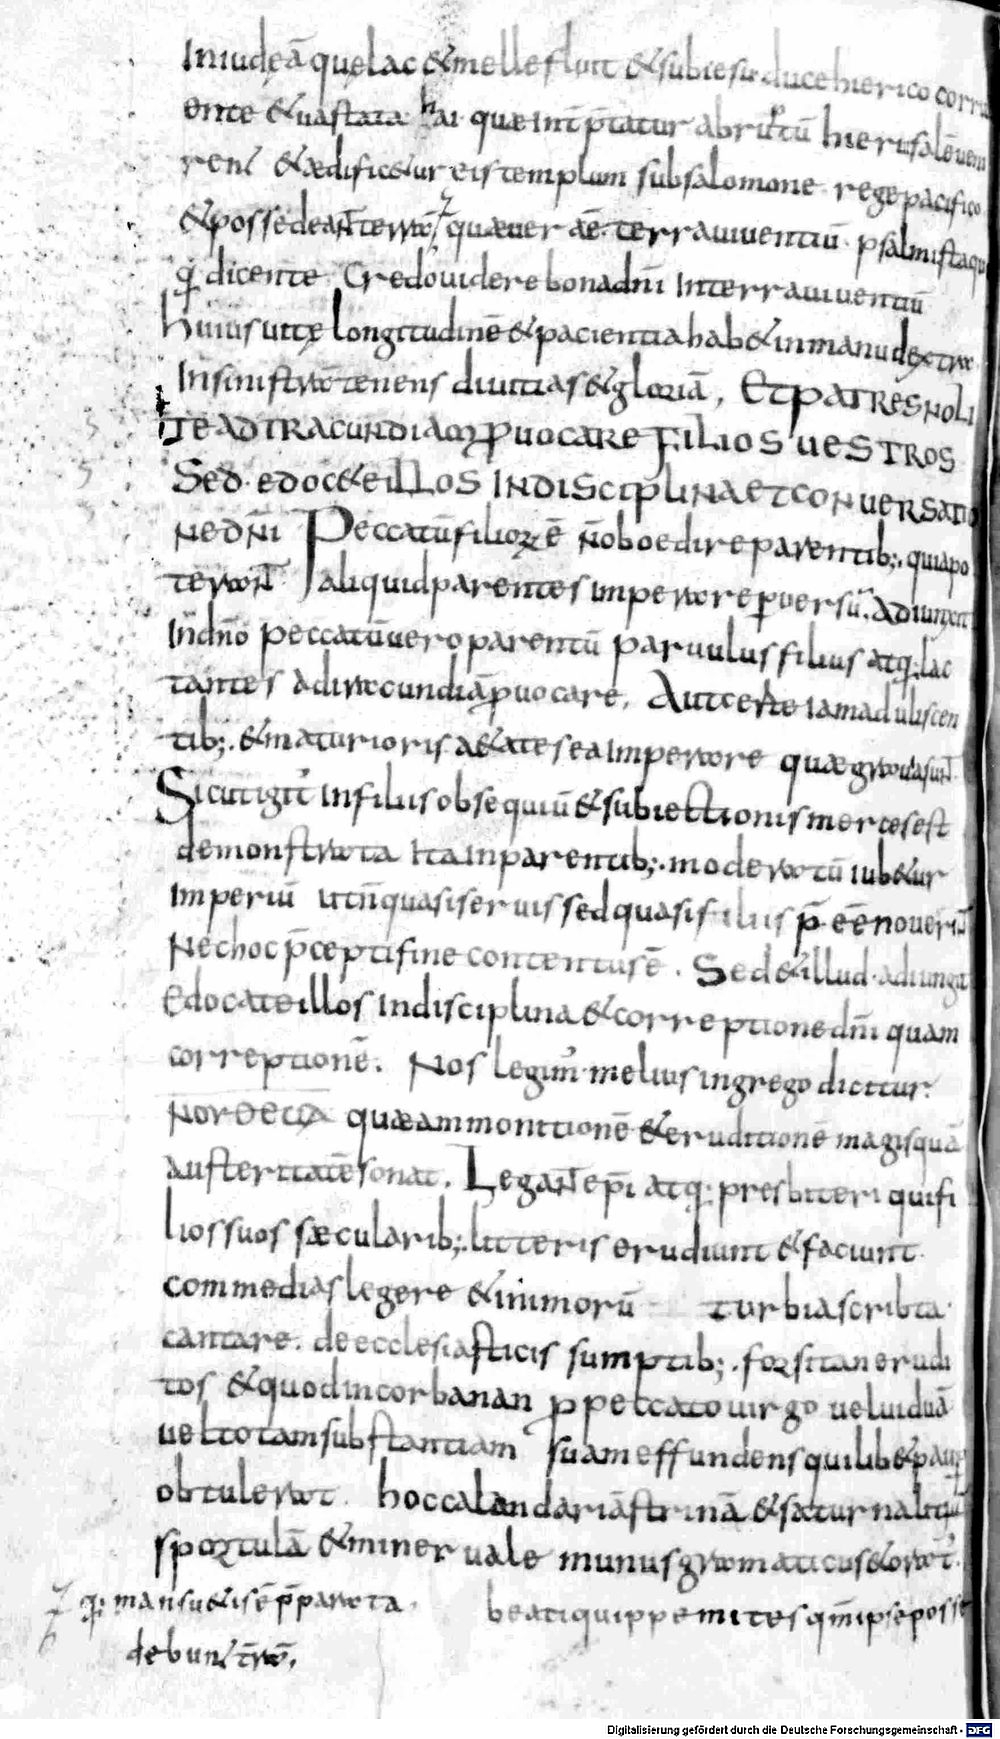 Iniudęā quę lac & melle fluit & sub iesu duce hierico corru
ente & uastata hai quae int̄ p̄tatur abruptū hierusalē uen
rent & aedificetur eis templum sub salomone rege pacifico
& possedeant̄ terrā quae uere ē terra uiuentiū psalmista quo
q; dicente. Credo uidere bona dn̄i In terra uiuentiū
huius uitę longitudinē & pacientia hab& in manu dextra
In sinistra tenens diuitias & gloriā, Et patres noli
te ad iracundiam ꝓuocare filios uestros
Sed edoc&e illos in disciplina et conuersatio
ne dn̄i Peccatū filiorū ē n̄ oboedire parentib;. quia po
terant aliquid parentes imperare ꝑuersū. adiunxit
In dn̄o peccatū uero parentū paruulus filius atq; lac
tantes ad iracundiā ꝓuocare, Aut certe iam adulescen
tib;. & maturioris aetatis ea imperare quae grauia sunt
Sicut igit̄ in filiis obsequiū & subiectionis merces est
demonstrata Ita in parentib;. moderatū iub&ur
Imperiū ut n̄ quasi seruis sed quasi filiis p̄eē nouerint
Nec hoc p̄cepti fine contentus ē. Sed & illud adiungit
Edocate illos in disciplina & correptione dn̄i quam
correptionē. Nos legim̄ melius in grego dicitur
quae ammonitionē & eruditionē magis quā
austeritatē sonat. Legant ep̄i atq; presbiteri qui fi
lios suos saecularib;. litteris erudiunt & faciunt
commedias legere & mimorū turbia scribta
cantare. de ecclesiasticis sumptib;. forsitan erudi
tos & quod in corbanan ꝓ peccato uirgo uel uiduā
uel totam substantiam suam effundens quilib& pauꝑ
obtulerat hoc calandariā strinā & saturnalitiū
sportulā & mineruale munus gramaticus & orator
q; mansu&is ē p̄parata. beati quippe mites qm̄ ipse posse
debunt t̄rā,